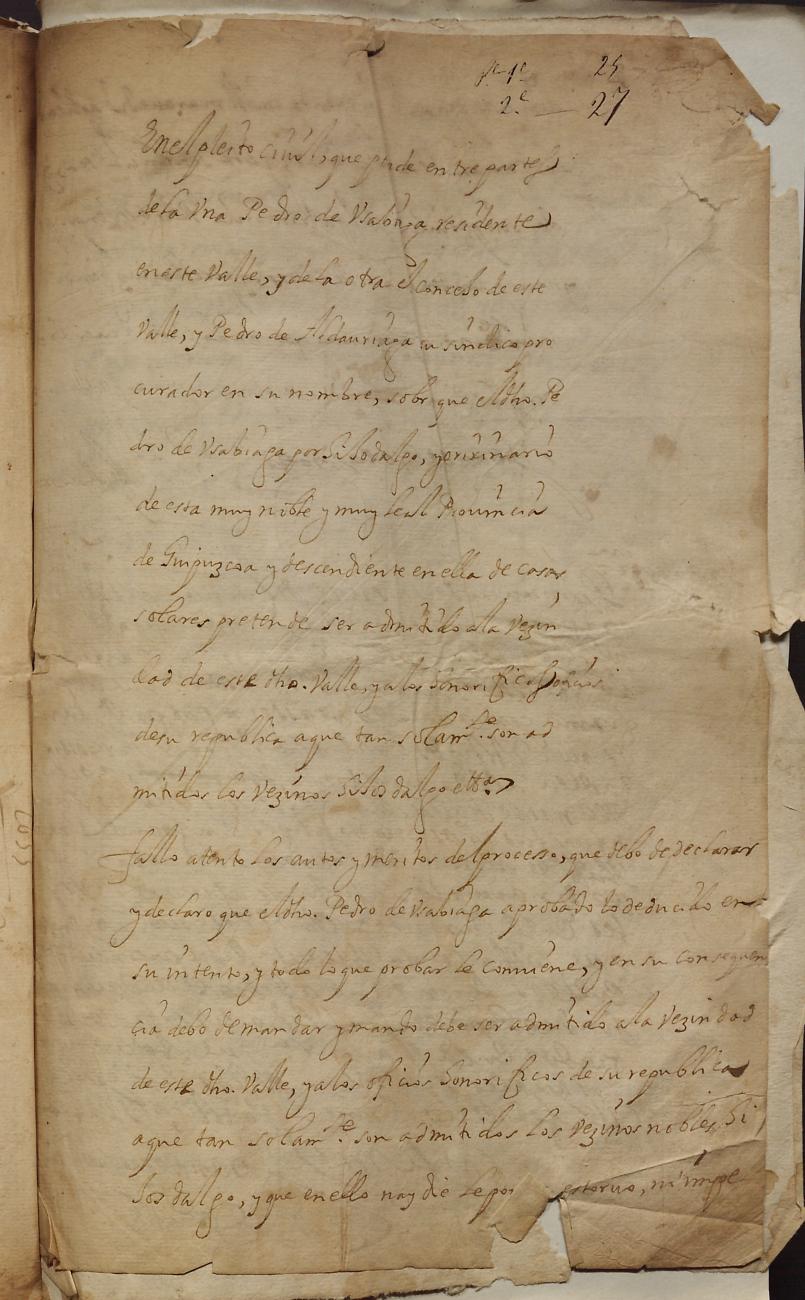 pe 1e 25
2e — 27
En el pleito civil, que pende entre partes
de la Vna Pedro de Vsabiaga residente
en este Valle, y de la otra el concejo de este
Valle, y Pedro de Aldauriaga su síndico pro
curador en su nombre, sobr que el dho. Pe
dro de Vsabiaga por hijodalgo, y orixinario
de esta muy noble y muy leal Prouincia
de Guipuzcoa y descendiente en ella de casas
solares pretende ser admitido ala Vezin
dad de este dho. Valle, y alos honorificos oficios
de su republica aque tan solamte. son ad
mitidos los Vezinos hijos dalgo etta.
fallo atento los autos y meritos del processo, que debo de declarar
y declaro que el dho. Pedro de Vsabiaga aprobado lo deducido en
su intento, y todo lo que probar le conuiene, y en su consequen
cia debo de mandar y mando debe ser admitido ala Vezindad
de este dho. Valle, y alos oficios honorificos de su republica
aque tan solamte. son admitidos los Vezinos nobles hi
jos dalgo, y que en ello naydie le estoruo, ni impe